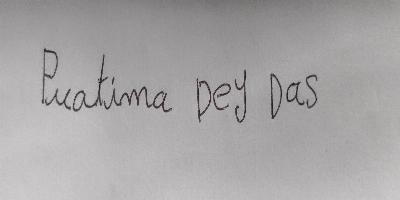 Pratima Dey Das